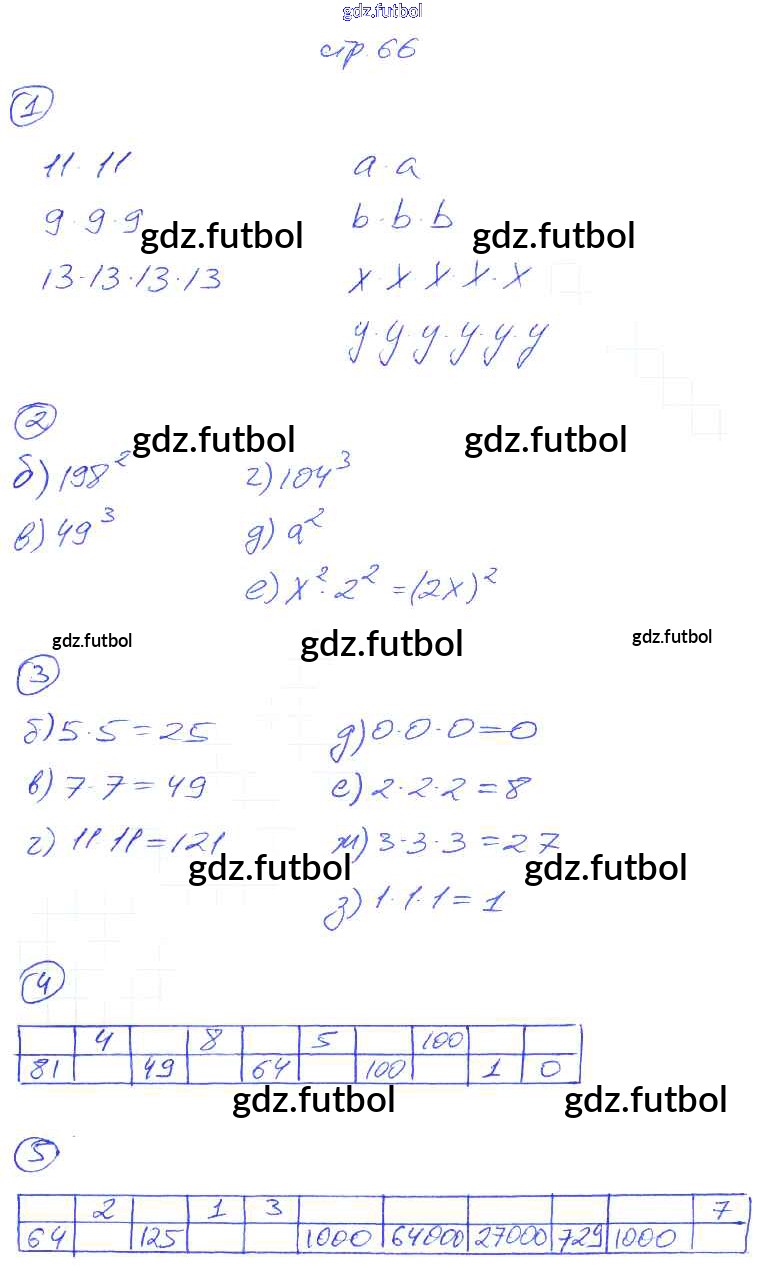 gdz.futbol
стр. 66
1
11·11 a·a
9·9·9 b·b·b
gdz.futbol gdz.futbol
13·13·13·13 x·x·x·x·x
y·y·y·y·y·y
2
gdz.futbol gdz.futbol
б) 198² г) 104³
в) 49³ д) a²
е) x²·2² = (2x)²
gdz.futbol gdz.futbol gdz.futbol
3
б) 5·5 = 25 д) 0·0·0 = 0
в) 7·7 = 49 е) 2·2·2 = 8
г) 11·11 = 121 ж) 3·3·3 = 27
gdz.futbol gdz.futbol
з) 1·1·1 = 1
4
4 8 5 100
81 49 64 100 1 0
gdz.futbol gdz.futbol
5
2 1 3 7
64 125 1000 64000 27000 729 1000